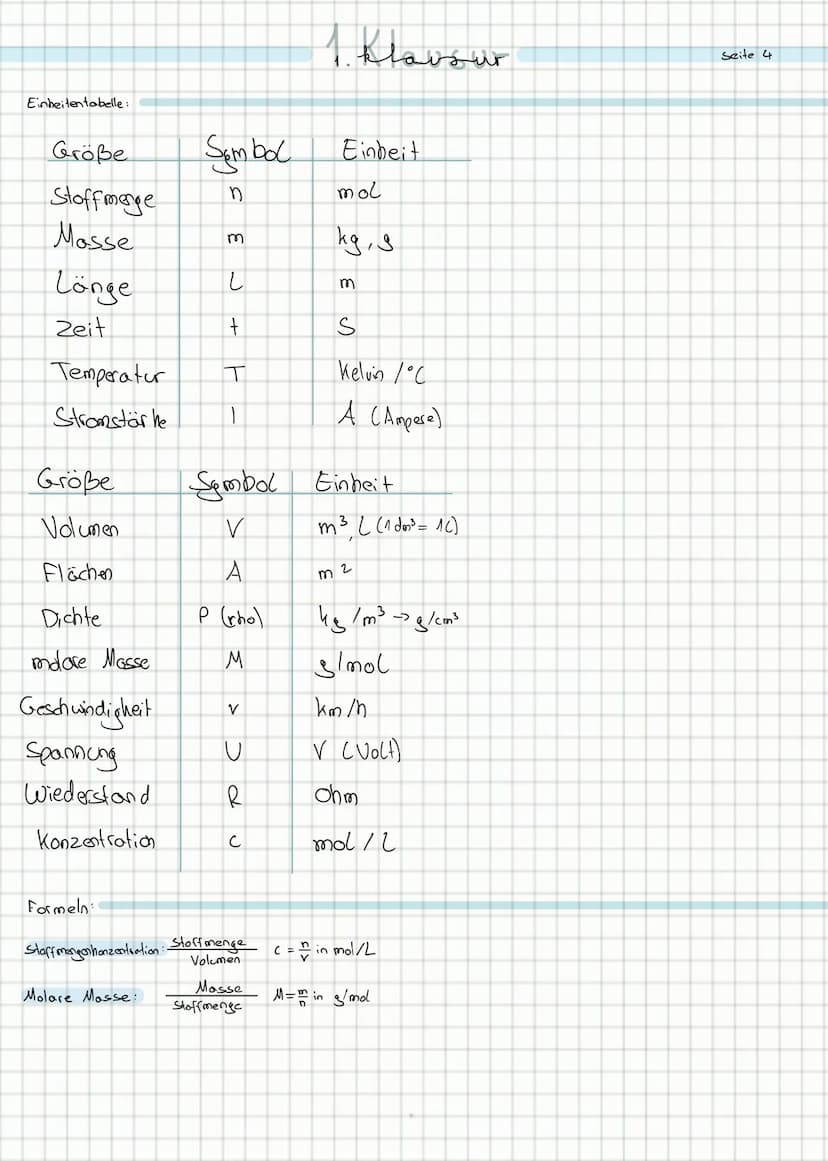 1. Klausur
Seite 4
Einheitentabelle:
Größe Symbol Einheit
Stoffmenge n mol
Masse m kg, g
Länge L m
Zeit t S
Temperatur T Kelvin /°C
Stromstärke I A (Ampere)
Größe Symbol Einheit
Volumen V m³, L (1dm³ = 1L)
Flächen A m²
Dichte P (rho) kg/m³ → g/cm³
molare Masse M g/mol
Geschwindigkeit v km/h
Spannung U V (Volt)
Wiederstand R Ohm
Konzentration c mol/L
Formeln:
Stoffmengenkonzentration: Stoffmenge/Volumen c = n/v in mol/L
Molare Masse: Masse/Stoffmenge M = m/n in g/mol